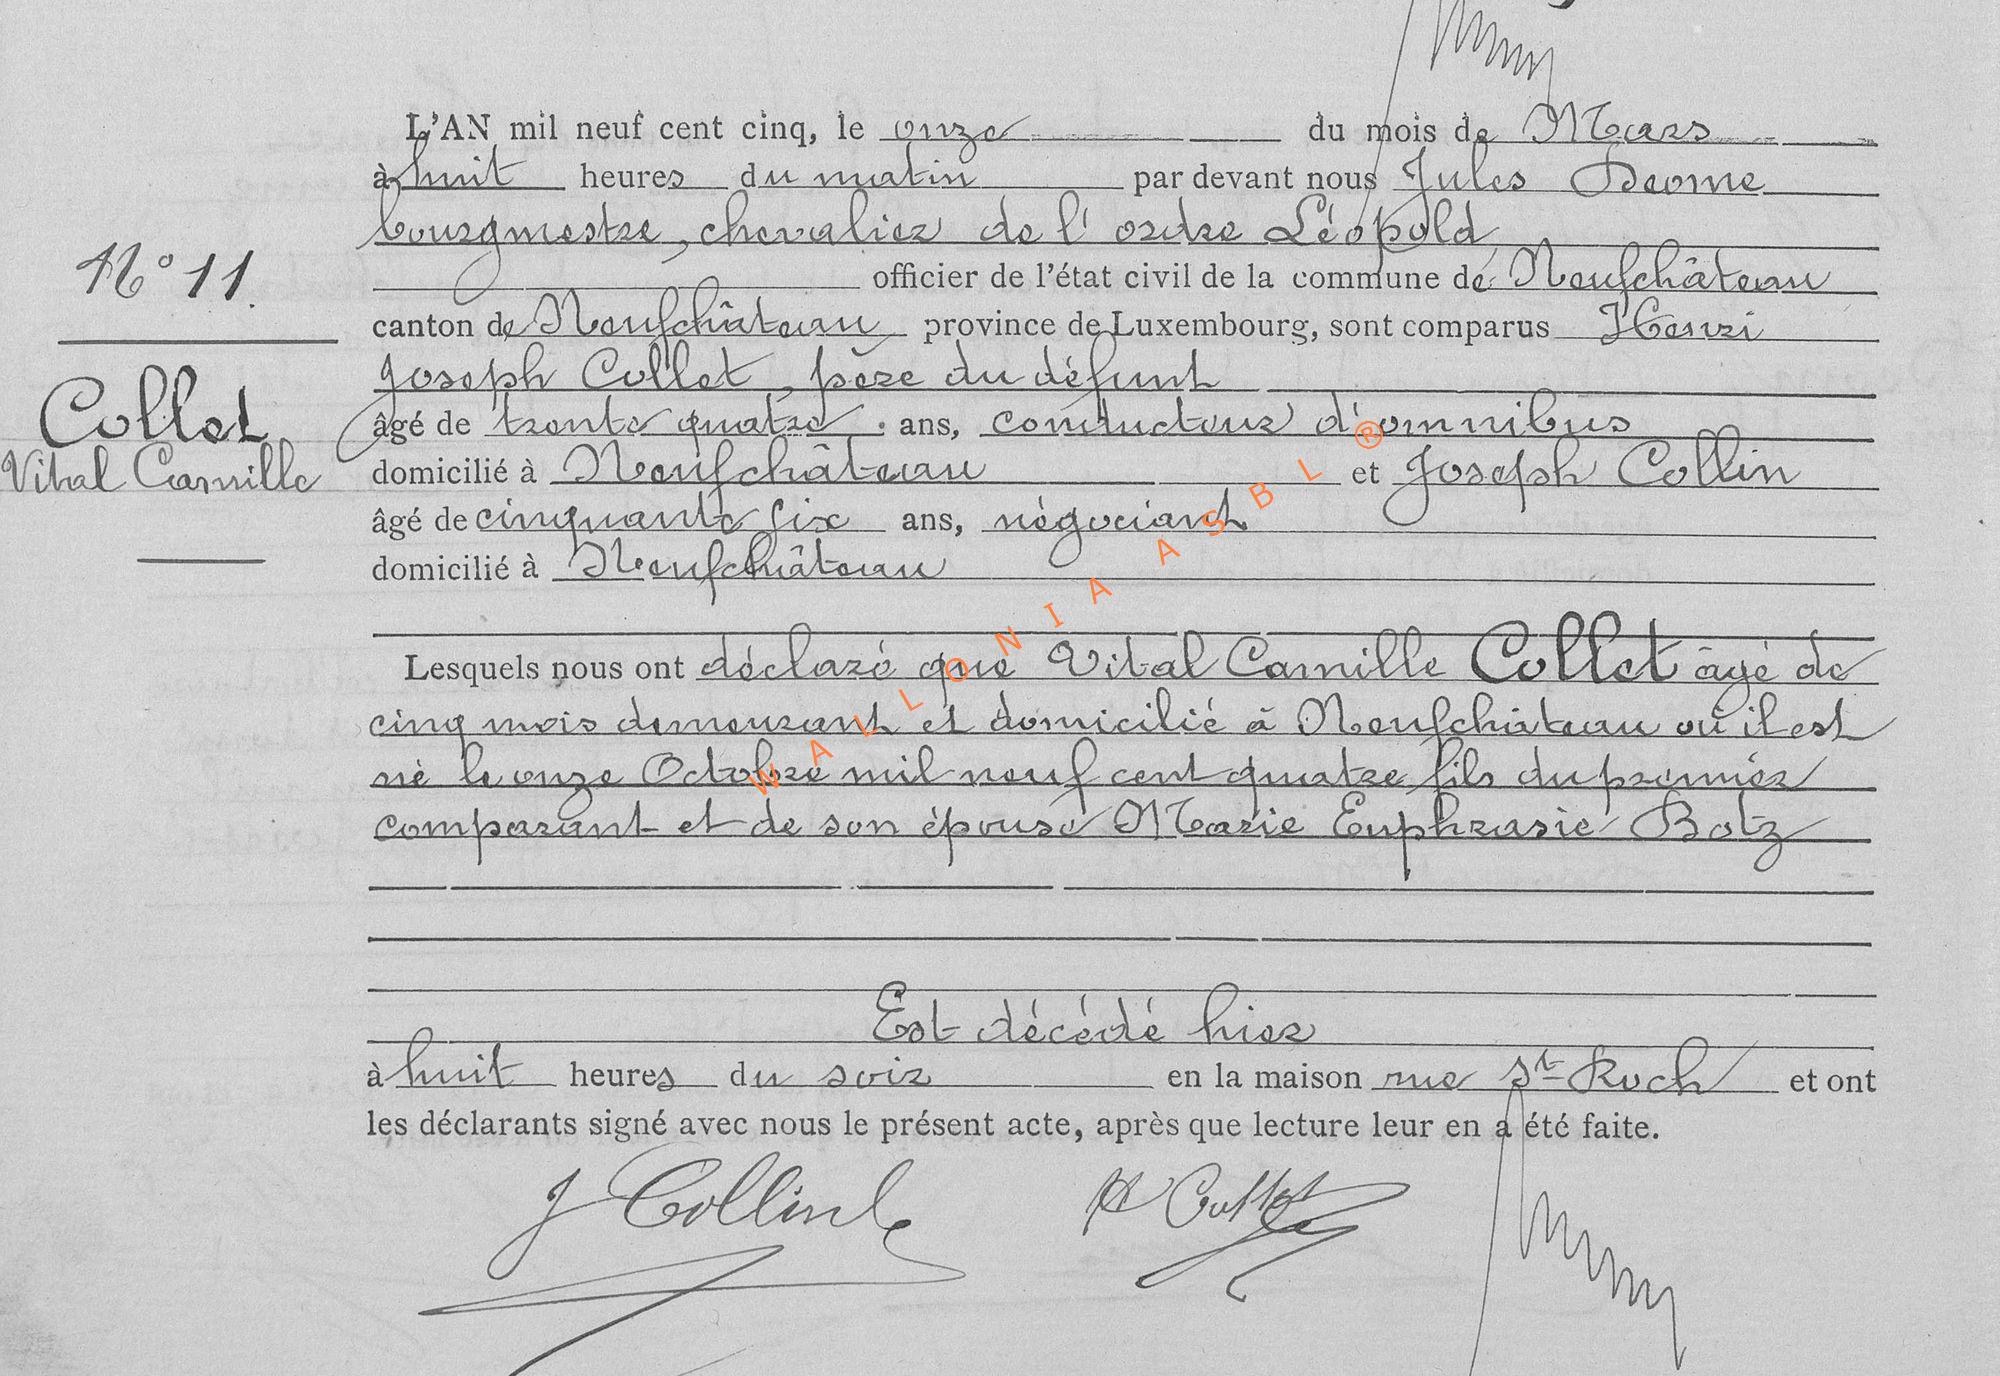 L'AN mil neuf cent cinq, le onze du mois de Mars
à huit heures du matin par devant nous Jules
bourgmestre, chevalier de l'ordre Léopold
N° 11.
officier de l'état civil de la commune de Neufchâteau
canton de Neufchâteau province de Luxembourg, sont comparus Henri
Joseph Collet, père du défunt
Collet
âgé de trente quatre ans, conducteur d'omnibus
Vital Camille
domicilié à Neufchâteau et Joseph Collin
âgé de cinquante six ans, négociant
domicilié à Neufchâteau
Lesquels nous ont déclaré que Vital Camille Collet âgé de
cinq mois demeurant et domicilié à Neufchâteau où il est
né le onze Octobre mil neuf cent quatre fils du premier
comparant et de son épouse Marie Euphrasie Botz
Est décédé hier
à huit heures du soir en la maison rue St Roch et ont
les déclarants signé avec nous le présent acte, après que lecture leur en a été faite.
J Collin H Collet
WALLONIA ASBL ®